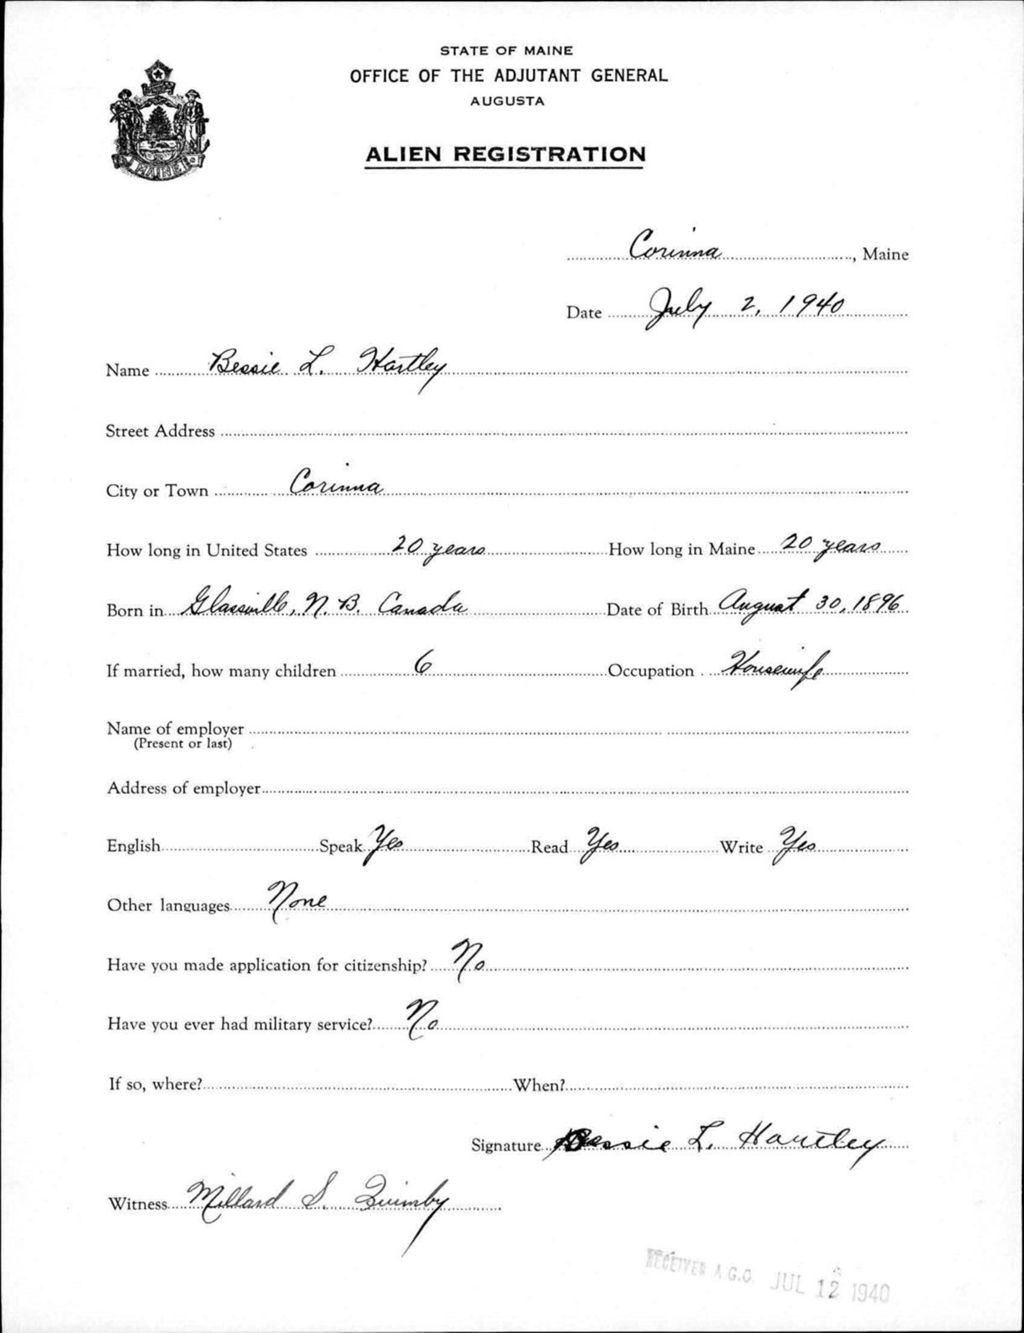 STATE OF MAINE
OFFICE OF THE ADJUTANT GENERAL
AUGUSTA
ALIEN REGISTRATION
MAINE
Corinna, Maine
Date July 2, 1940
Name Bessie L. Hartley
Street Address
City or Town Corinna
How long in United States 20 years How long in Maine 20 years
Born in Glassville, N. B. Canada Date of Birth August 30, 1896
If married, how many children 6 Occupation Housewife
Name of employer
(Present or last)
Address of employer
English Speak Yes Read Yes Write Yes
Other languages None
Have you made application for citizenship? No
Have you ever had military service? No
If so, where? When?
Signature Bessie L. Hartley
Witness Millard S. Quimby
RECEIVED A.G.O. JUL 12 1940